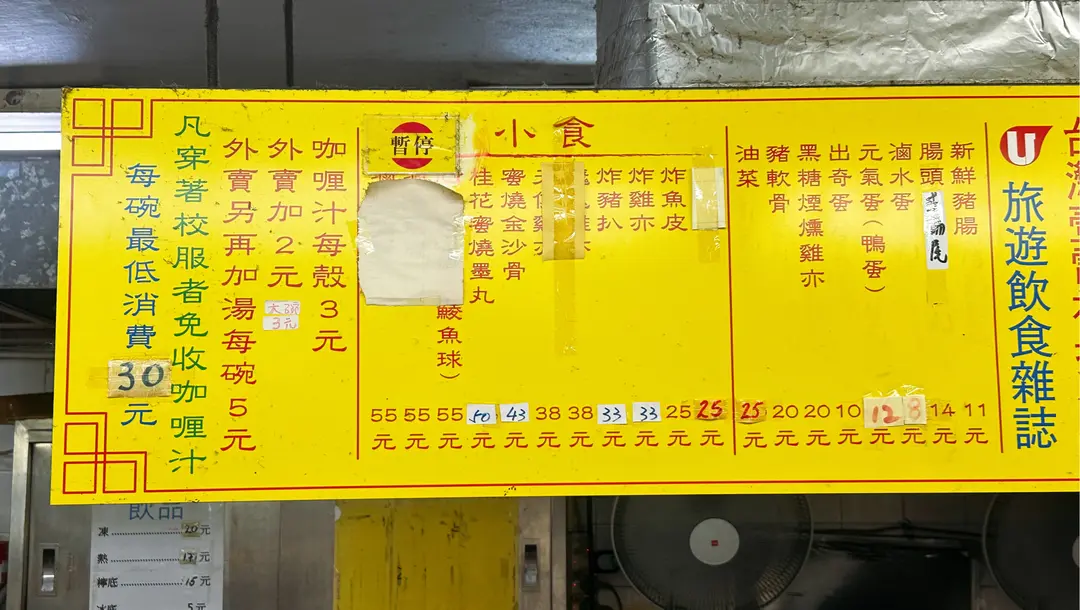 U
旅遊飲食雜誌
新鮮豬腸 11元
腸頭 14元
滷水蛋 8元
元氣蛋(鴨蛋) 12元
出奇蛋 10元
黑糖煙燻雞亦 20元
豬軟骨 20元
油菜 25元
小食
25元
炸魚皮 25元
炸雞亦 33元
炸豬扒 33元
38元
38元
蜜燒金沙骨 43元
桂花蜜燒墨丸 50元
鯪魚球) 55元
55元
55元
暫停
咖喱汁每殼3元
外賣加2元
大碗
3元
外賣另再加湯每碗5元
凡穿著校服者免收咖喱汁
每碗最低消費30元
飲品
凍 20元
熱 17元
檸底 15元
冰底 5元